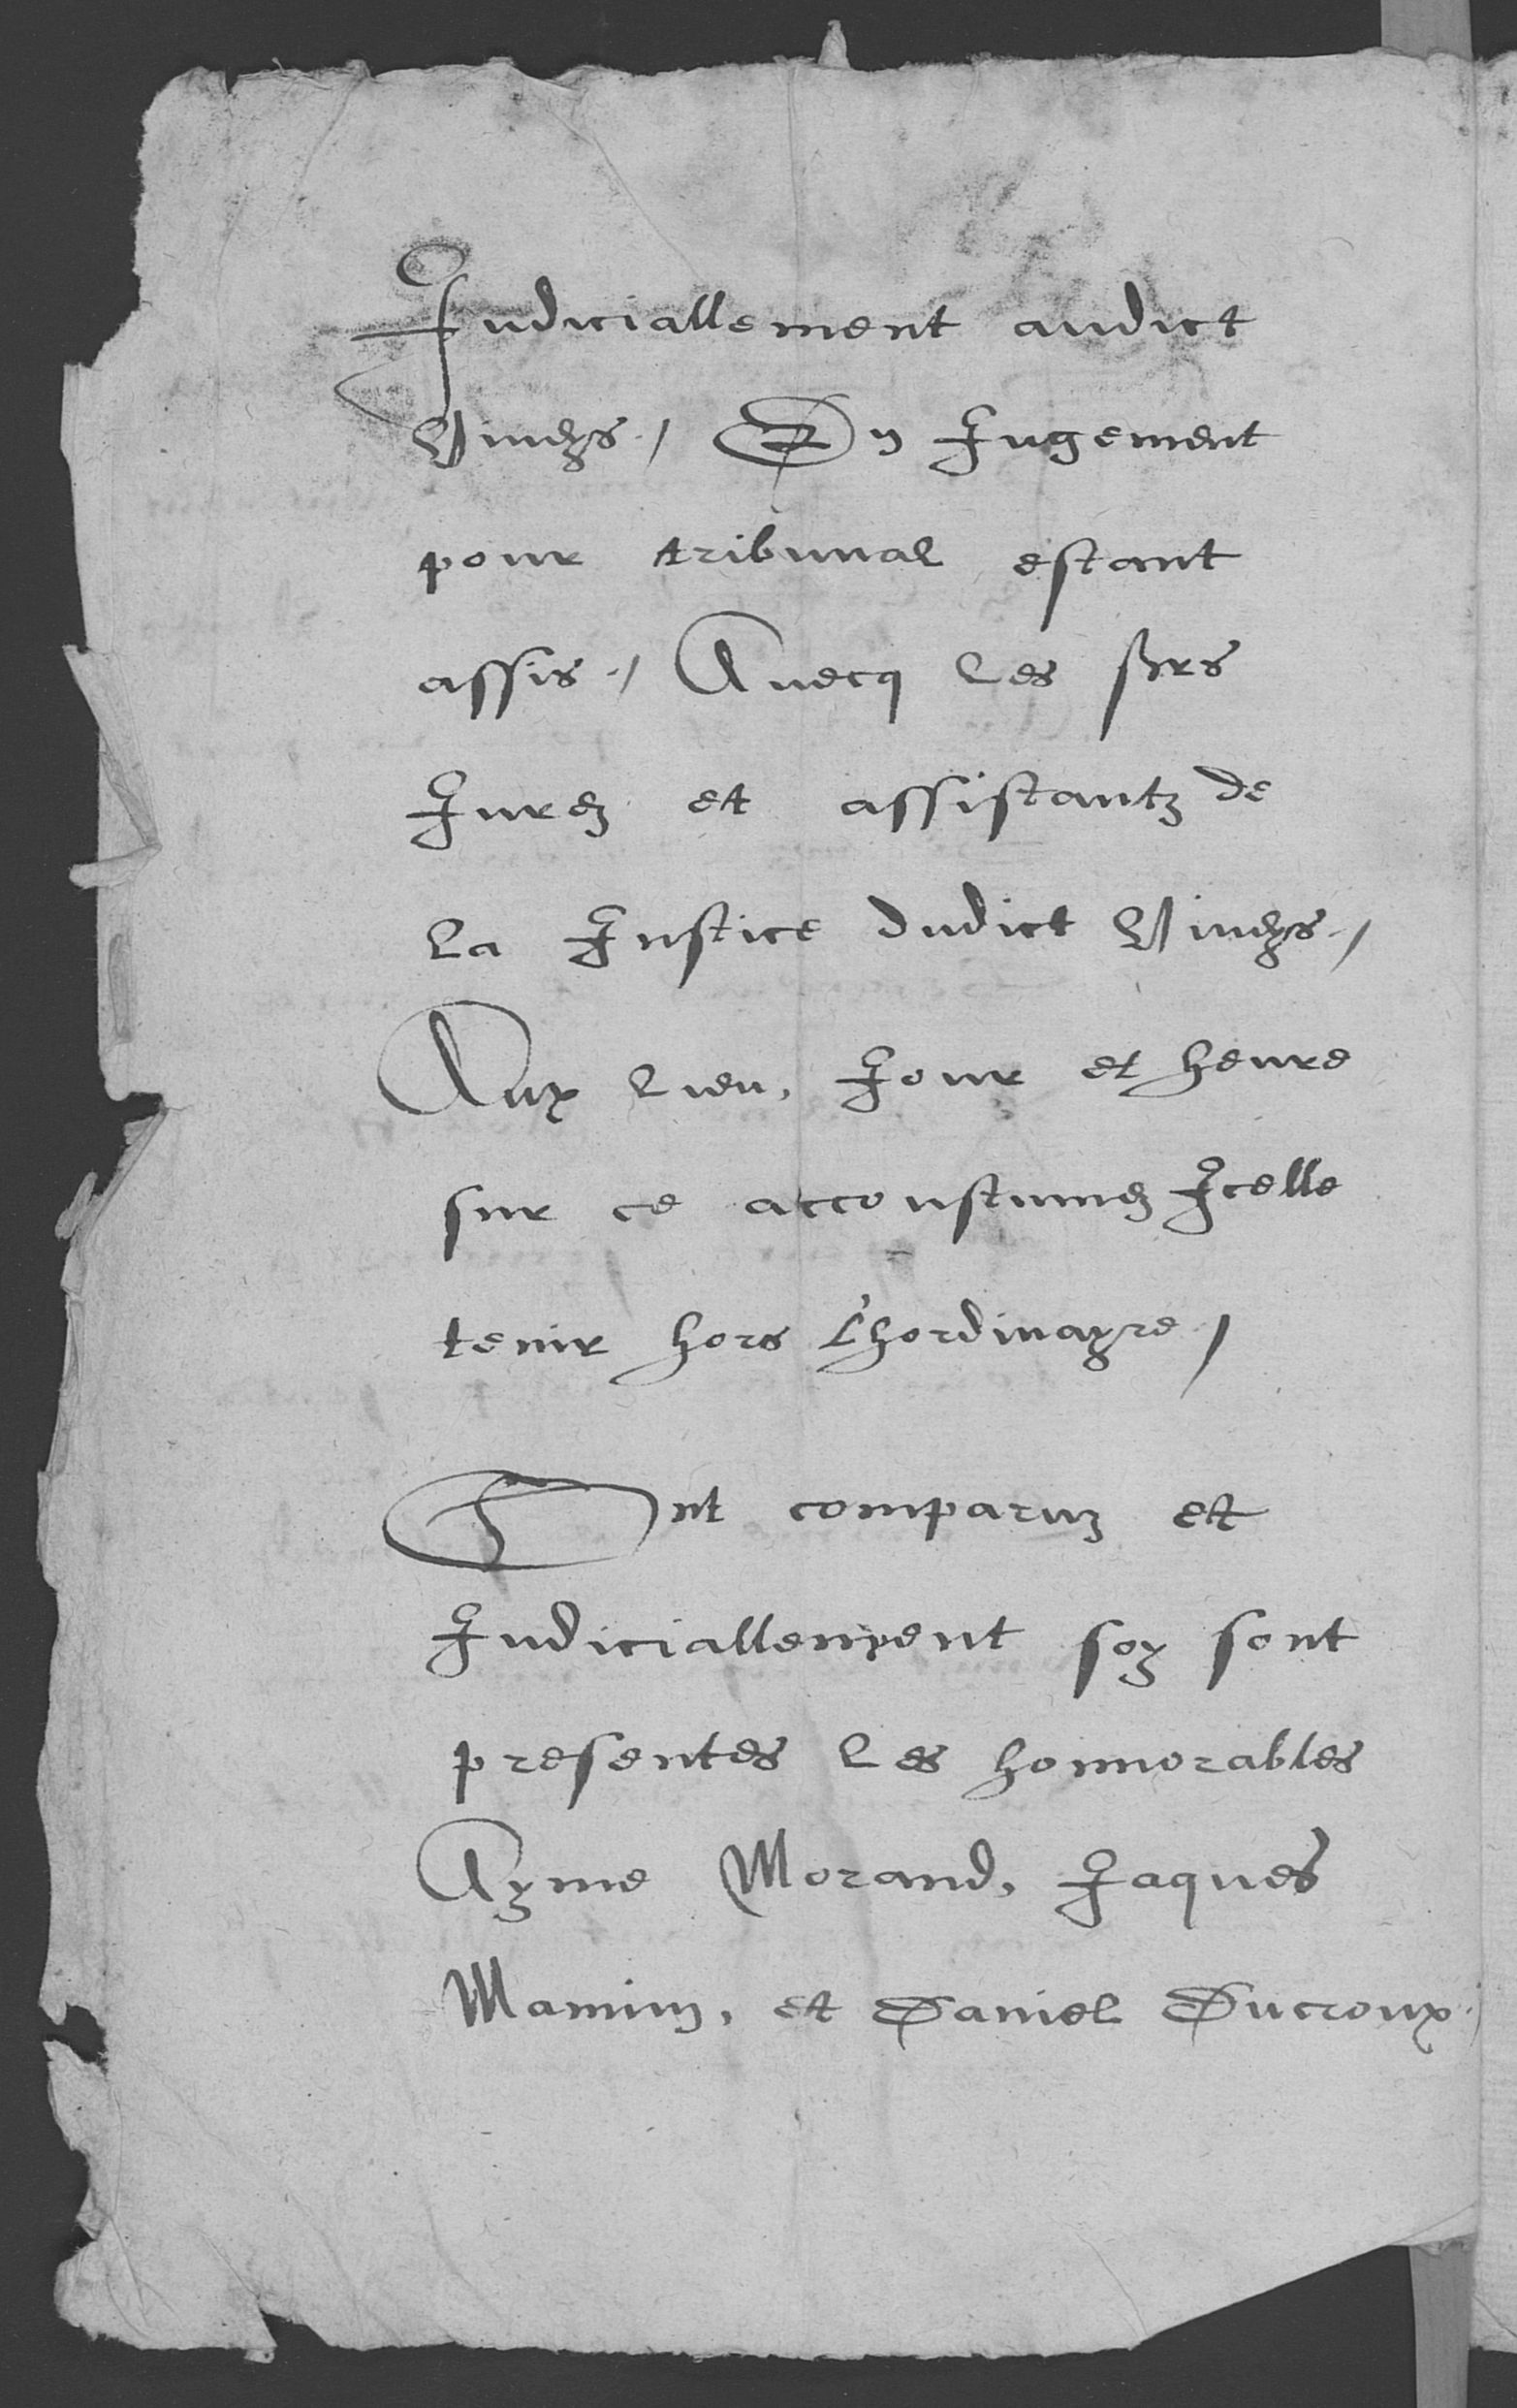 Judiciallement audict
Viveys./ En Jugement
pour tribunal estant
assis./ Avecq les srs
Jurez et assistantz de
la Justice dudict Viveys./
Aux lieu, Jour et heure
sur ce accoustumez Icelle
tenir hors l'hordinayre /
Ont comparuz et
Judiciallement soy sont
presentes les honnorables
Ayme Morand, Jaques
Mamin, et Daniel Ducroux.